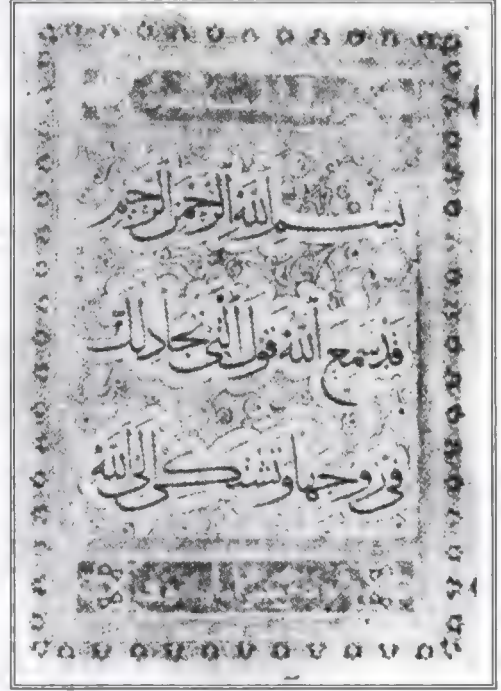 بسم الله الرحمن الرحيم
قد سمع الله قول التي تجادلك
في زوجها وتشتكى إلى الله